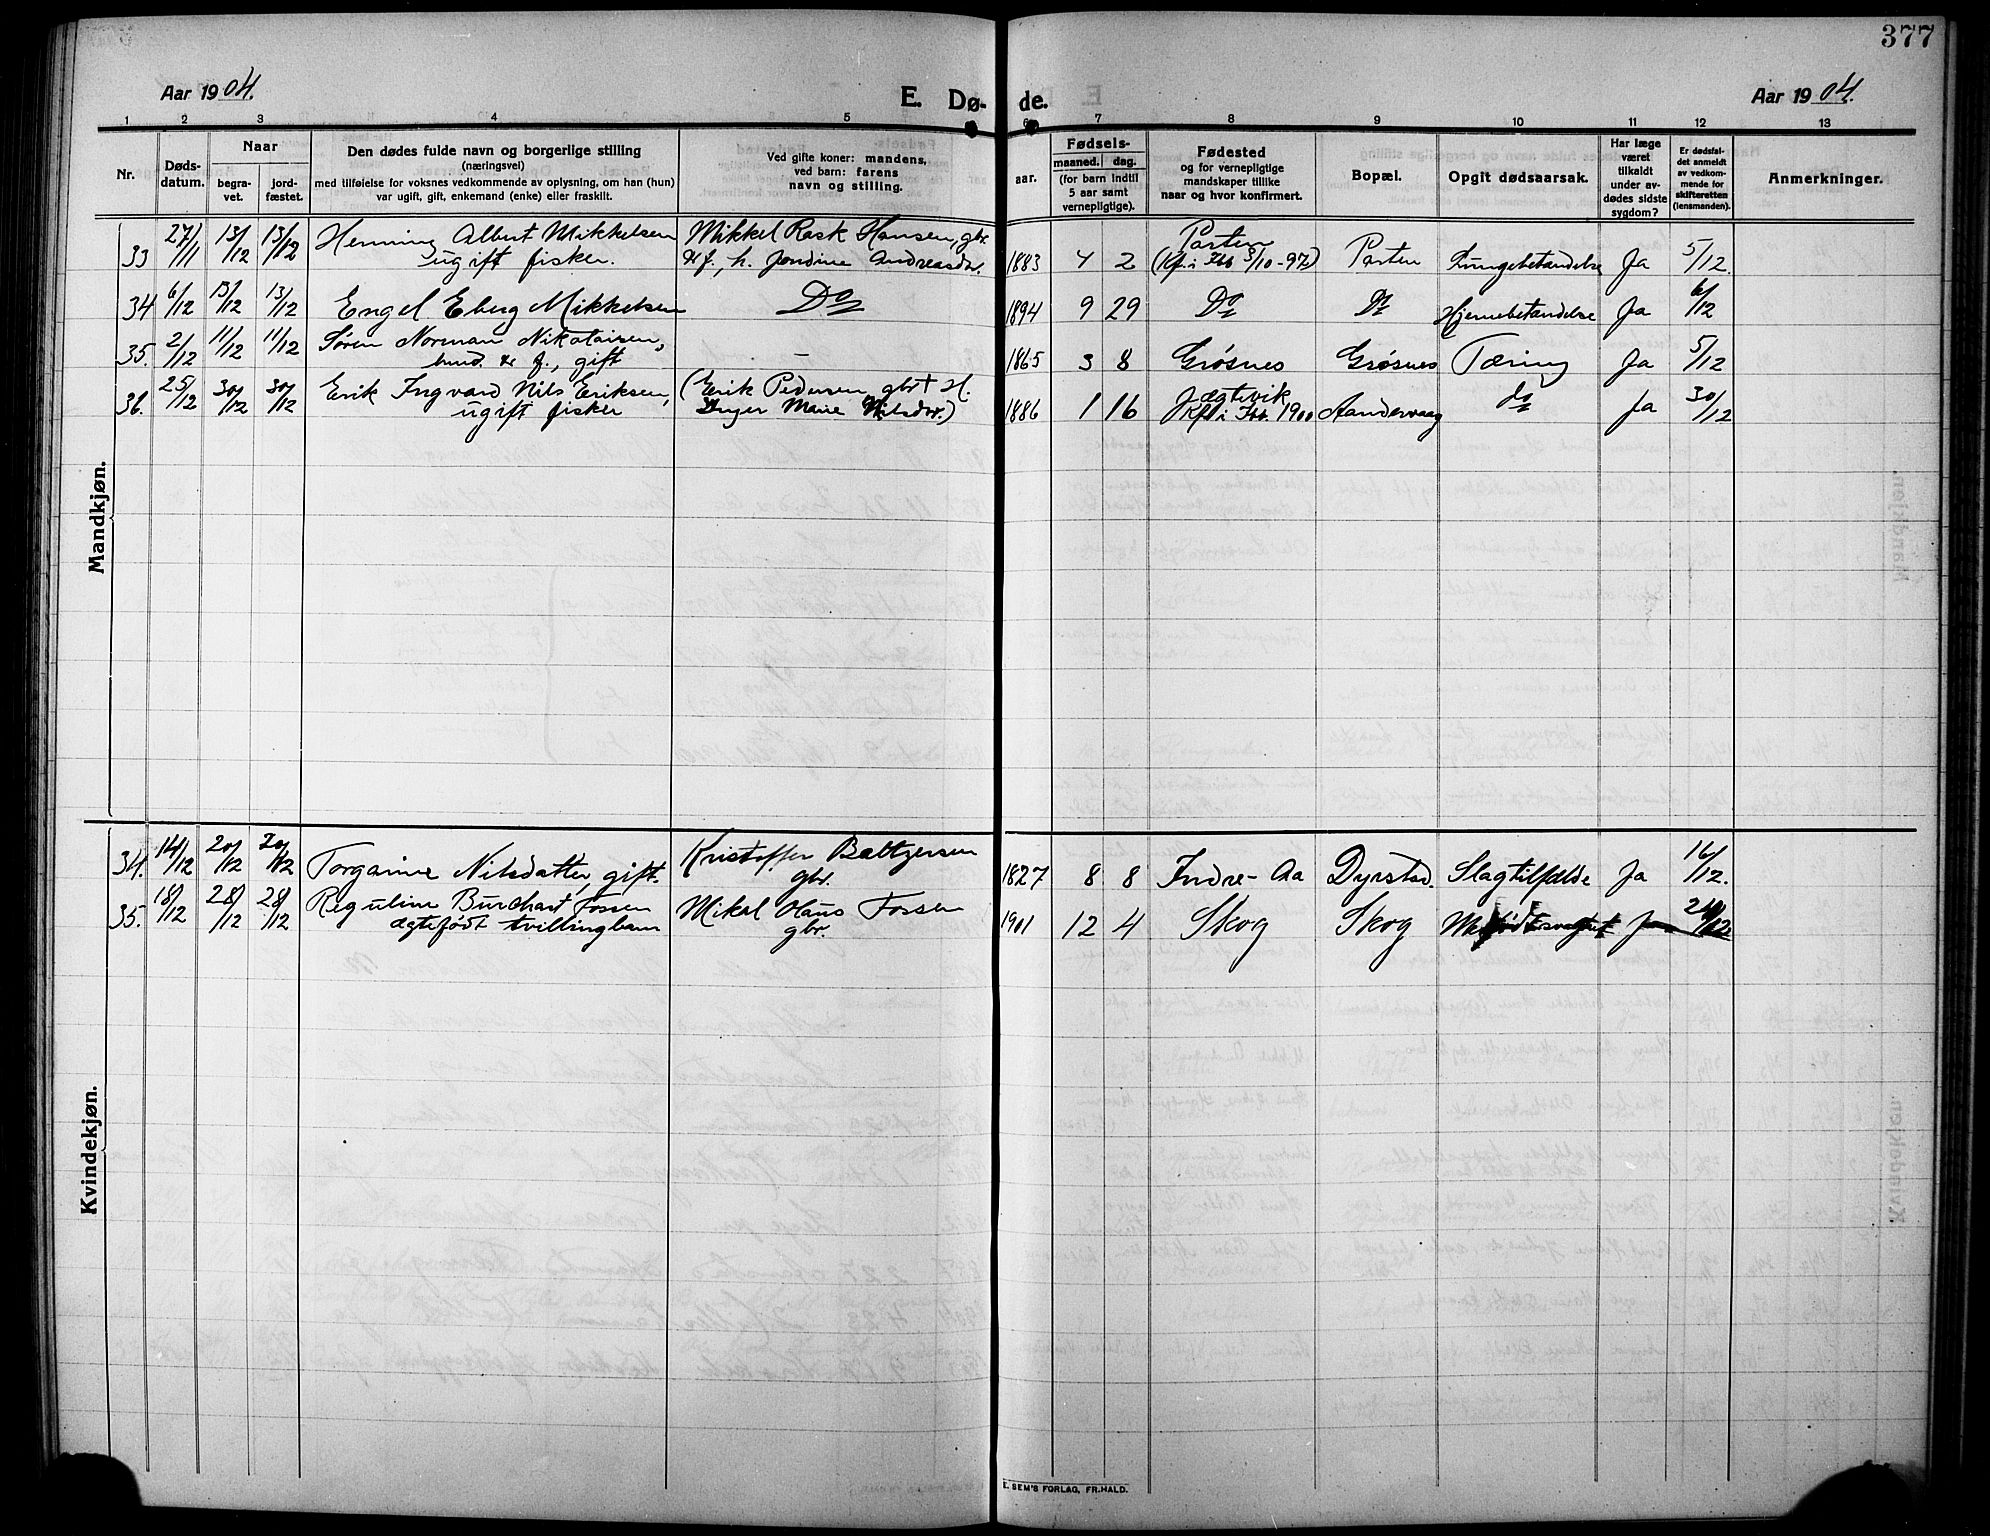 377
Aar 1904.
E. Dø- de.
Aar 1904.
1 2 3 4 5 6 7 8 9 10 11 12 13
Nr.
Døds-
datum.
Naar
begra-
vet.
jord-
fæstet.
Den dødes fulde navn og borgerlige stilling
(næringsvei)
med tilføielse for voksnes vedkommende av oplysning, om han (hun)
var ugift, gift, enkemand (enke) eller fraskilt.
Ved gifte koner: mandens,
ved barn: farens
navn og stilling.
Fødsels-
aar.
maaned. dag.
(for barn indtil
5 aar samt
vernepligtige).
Fødested
og for vernepligtige
mandskaper tillike
naar og hvor konfirmert.
Bopæl.
Opgit dødsaarsak.
Har læge
været
tilkaldt
under av-
dødes sidste
sygdom?
Er dødsfal-
det anmeldt
av vedkom-
mende for
skifteretten
(lensmanden).
Anmerkninger.
Mandkjøn.
33 27/11 13/12 13/12 Henning Albert Mikkelsen Mikkel Rask Hansen, gbr. 1883 4 2 Parten Parten Lungebetændelse Ja 5/12.
ugift fisker. & f., h. Jondine Andreasdr. (Kf. i Ibb 3/10-97)
34 6/12 13/12 13/12 Engel Eberg Mikkelsen Do 1894 9 29 Do Do Hjernebetændelse Ja 6/12
35. 2/12 11/12 11/12 Søren Norman Nikolaisen, – 1865 3 8 Grøsnes Grøsnes Tæring Ja 5/12
& f., gift
36. 25/12 30/12 30/12 Erik Ingvard Nils Eriksen, (Erik Pedersen, gbr + H. 1886 1 16 Jægtevik Aandervaag do Ja 30/12
ugift fisker Inger Marie Nilsdr.) Kf. i Ibb. 1900
Kvindekjøn.
34. 14/12 20/12 20/12 Torganine Nilsdatter, gift. Kristoffer Baltzersen 1827 8 8 Indre-Aa Dyrstad. Slagtilfælde Ja 16/12.
gbr.
35. 18/12 28/12 28/12 Reguline Burchart Fossen Mikal Olaus Fossen 1901 12 4 Skog Skog
ægtefødt tvillingbarn gbr.
E. SEM'S FORLAG, FR.HALD.